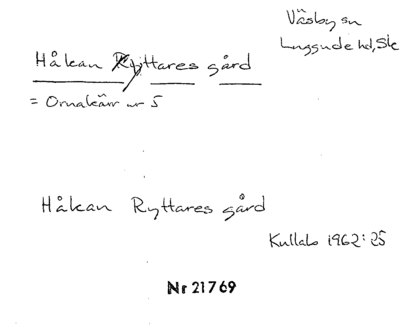 Väsby sn
Luggude hd, Sk
Håkan Ryttares gård
= Ornakärr nr 5
Håkan Ryttares gård
Kullabo 1962:25
Nr 21769